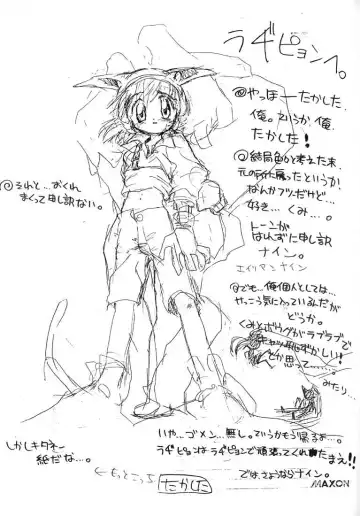 ラヂピョンへ。
@やっほーたかした。
俺。というか、俺、
たかした！
@結局色々考えた末、
元の所に戻ったというか
なんかフツーだけど…
好き…くみ…。
トーンが
はれずに申し訳
ナイン。
エイリアンナイン
@それと…おくれ
まくって申し訳ない。
@でも…俺個人としては…
やっこう気に入っているんだが
どうか。
くみとボウグがラブラブで
恥ずかしい！
とか思って……
みたり…
しかしキタネー
紙だな…。
いや…ゴメン…無し。ていうかもう帰るよ…。
ラヂピョンはラヂピョンで頑張ってくれたまえ!!
では、さようならナイン。
←もっとこっち
たかした
MAXON